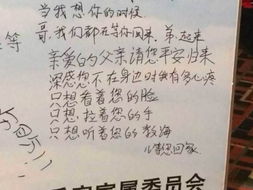 当我想你的时候
哥,我们都在等你回来,弟起来
等
亲爱的父亲请您平安归来
深感您不在身边时我有多心疼
只想看着您的脸
只想拉着您的手
只想听着您的教诲
儿等您回家
家属委员会